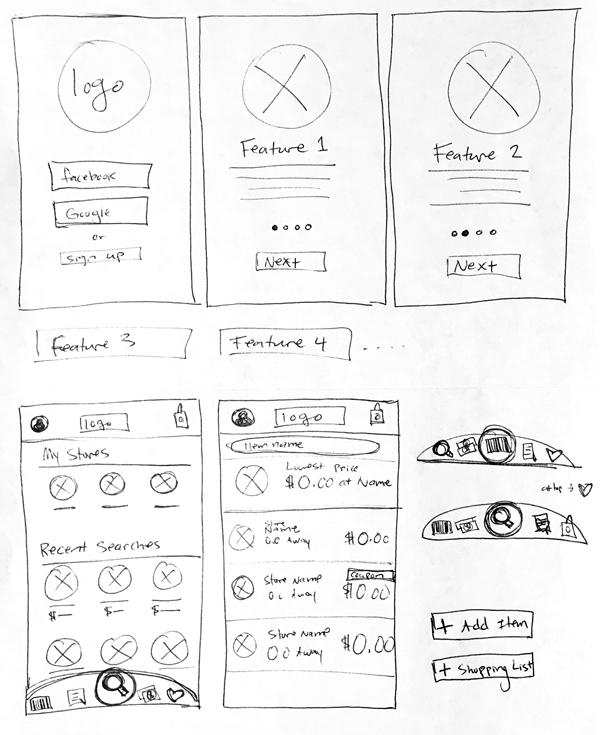 logo
facebook
Google
or
sign up
Feature 1
Next
Feature 2
Next
Feature 3
Feature 4
logo
My Stores
Recent Searches
$—
$—
$—
logo
Item name
Lowest Price
$0.00 at Name
Store
Name
0.0 Away
$0.00
Store Name
0.0 Away
Coupon
$0.00
Store Name
0.0 Away
$0.00
+ Add Item
+ Shopping List